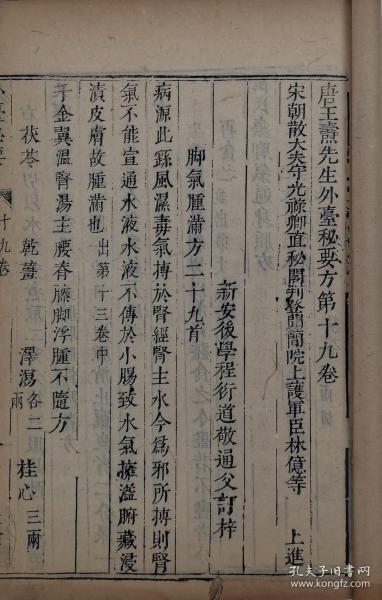 唐王燾先生外臺秘要方第十九卷
宋朝散大夫守光祿卿直秘閣判登聞簡院上護軍臣林億等 上進
新安後學程衍道敬通父訂梓
脚氣腫滿方二十九首
病源此繇風濕毒氣搏於腎經腎主水今為邪所搏則腎
氣不能宣通水液水液不傳於小腸致水氣擁溢腑藏浸
漬皮膚故腫滿也 出第十三卷中
千金翼溫腎湯主腰脊膝脚浮腫不隨方
茯苓 乾薑 澤瀉 各二兩 桂心 三兩
十九卷
孔夫子旧书网